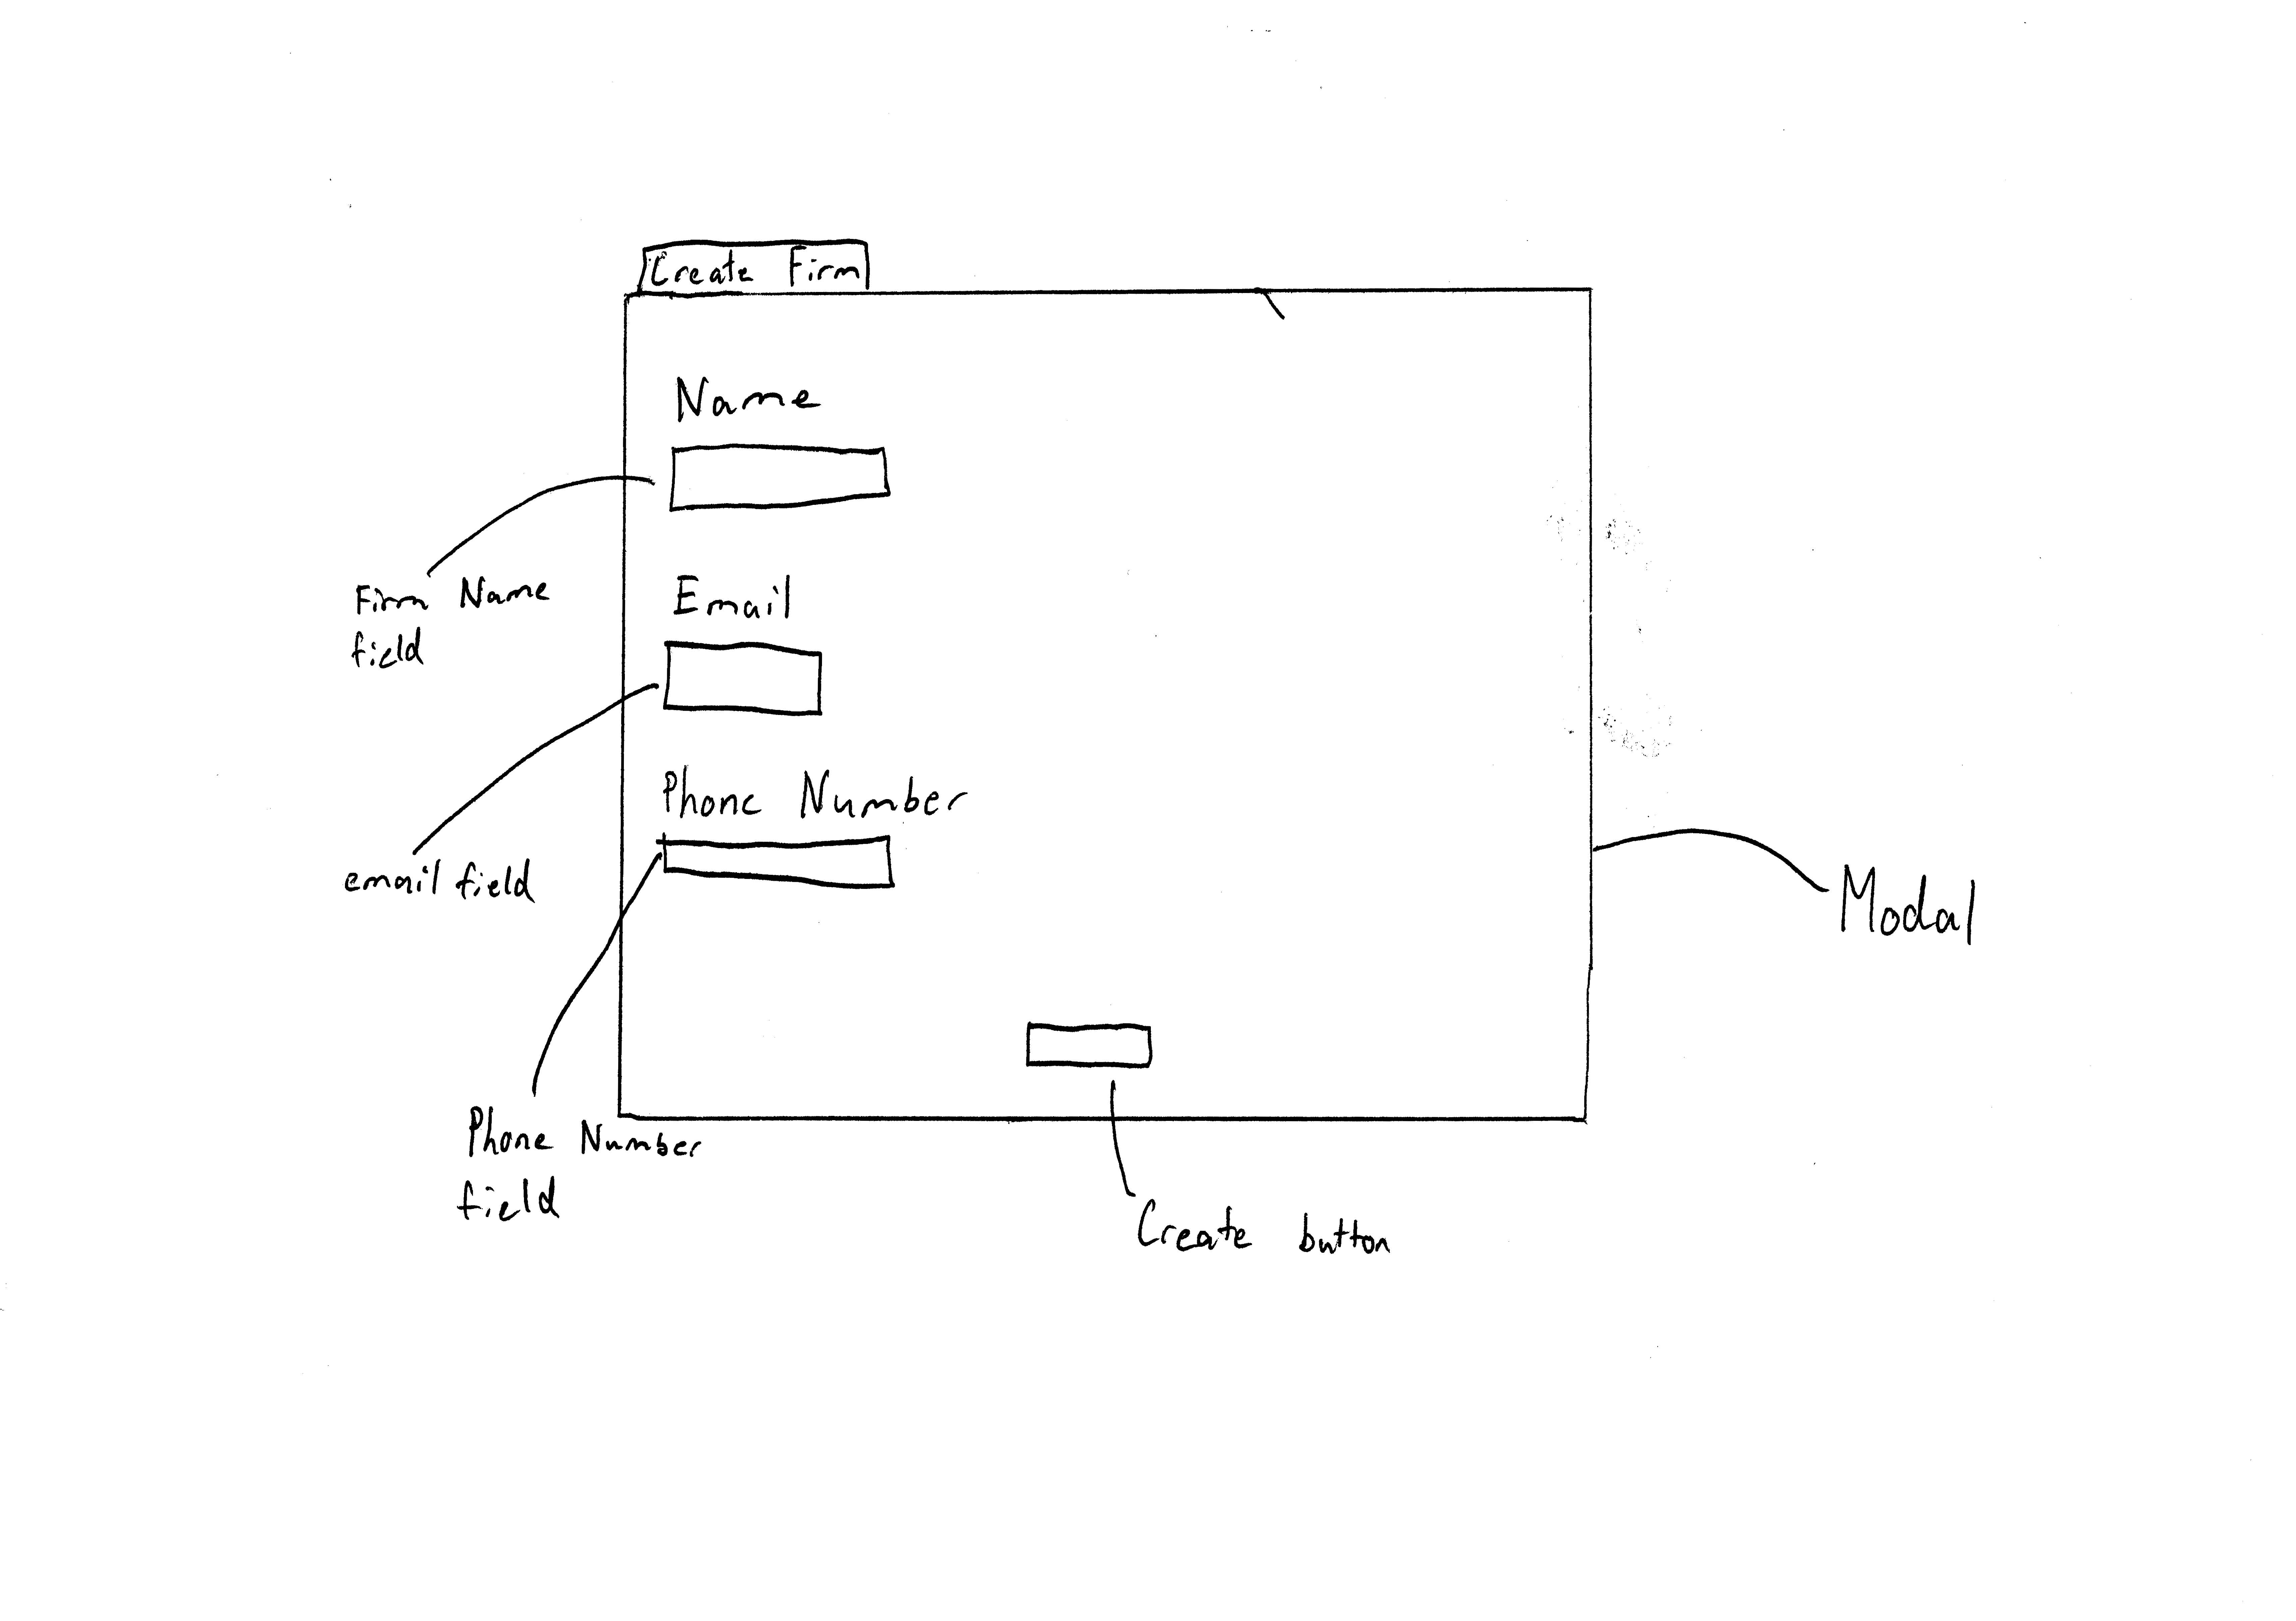 Create Firm
Name
Firm Name
field
Email
email field
Phone Number
Modal
Phone Number
field
Create button